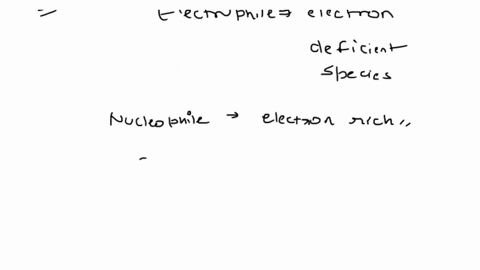 => Electrophile => electron
deficient
species
Nucleophile → electron rich,,
-